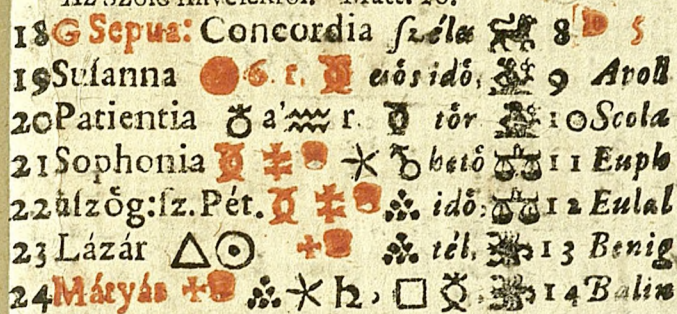 18 G Sepua: Concordia ſzéles 8 5
19 Suſanna 6. r. esős idő, 9 Apoll
20 Patientia ♉ a' ♒ r. tör 10 Scola
21 Sophonia hető 11 Euph
22 üſzög: ſz. Pét. idő; 12 Eulal
23 Lázár △ ☉ tél. 13 Benig
24 Mátyás ♄, □ 14 Balin